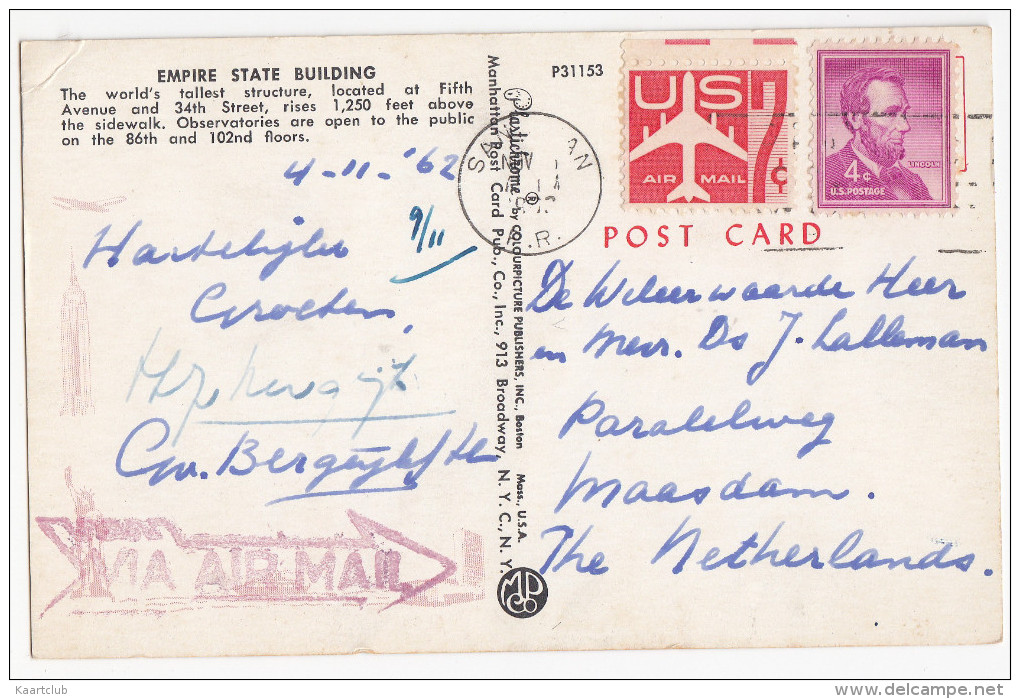 EMPIRE STATE BUILDING
The world's tallest structure, located at Fifth
Avenue and 34th Street, rises 1,250 feet above
the sidewalk. Observatories are open to the public
on the 86th and 102nd floors.
4-11-'62
9/11
Hartelijke
Groeten,
Gw. Bergwijk
VIA AIR MAIL
Plastichrome® by COLOURPICTURE PUBLISHERS, INC., Boston Mass., U.S.A.
Manhattan Post Card Pub., Co., Inc., 913 Broadway, N. Y. C., N. Y.
MPC
Co
P31153
SAN JUAN
P.R.
US
7¢
AIR MAIL
4¢
LINCOLN
U.S. POSTAGE
POST CARD
De Weleerwaarde Heer
en Mevr. Ds J. Lalleman
Paralelweg
Maasdam.
The Netherlands.
Kaartclub
delcampe.net